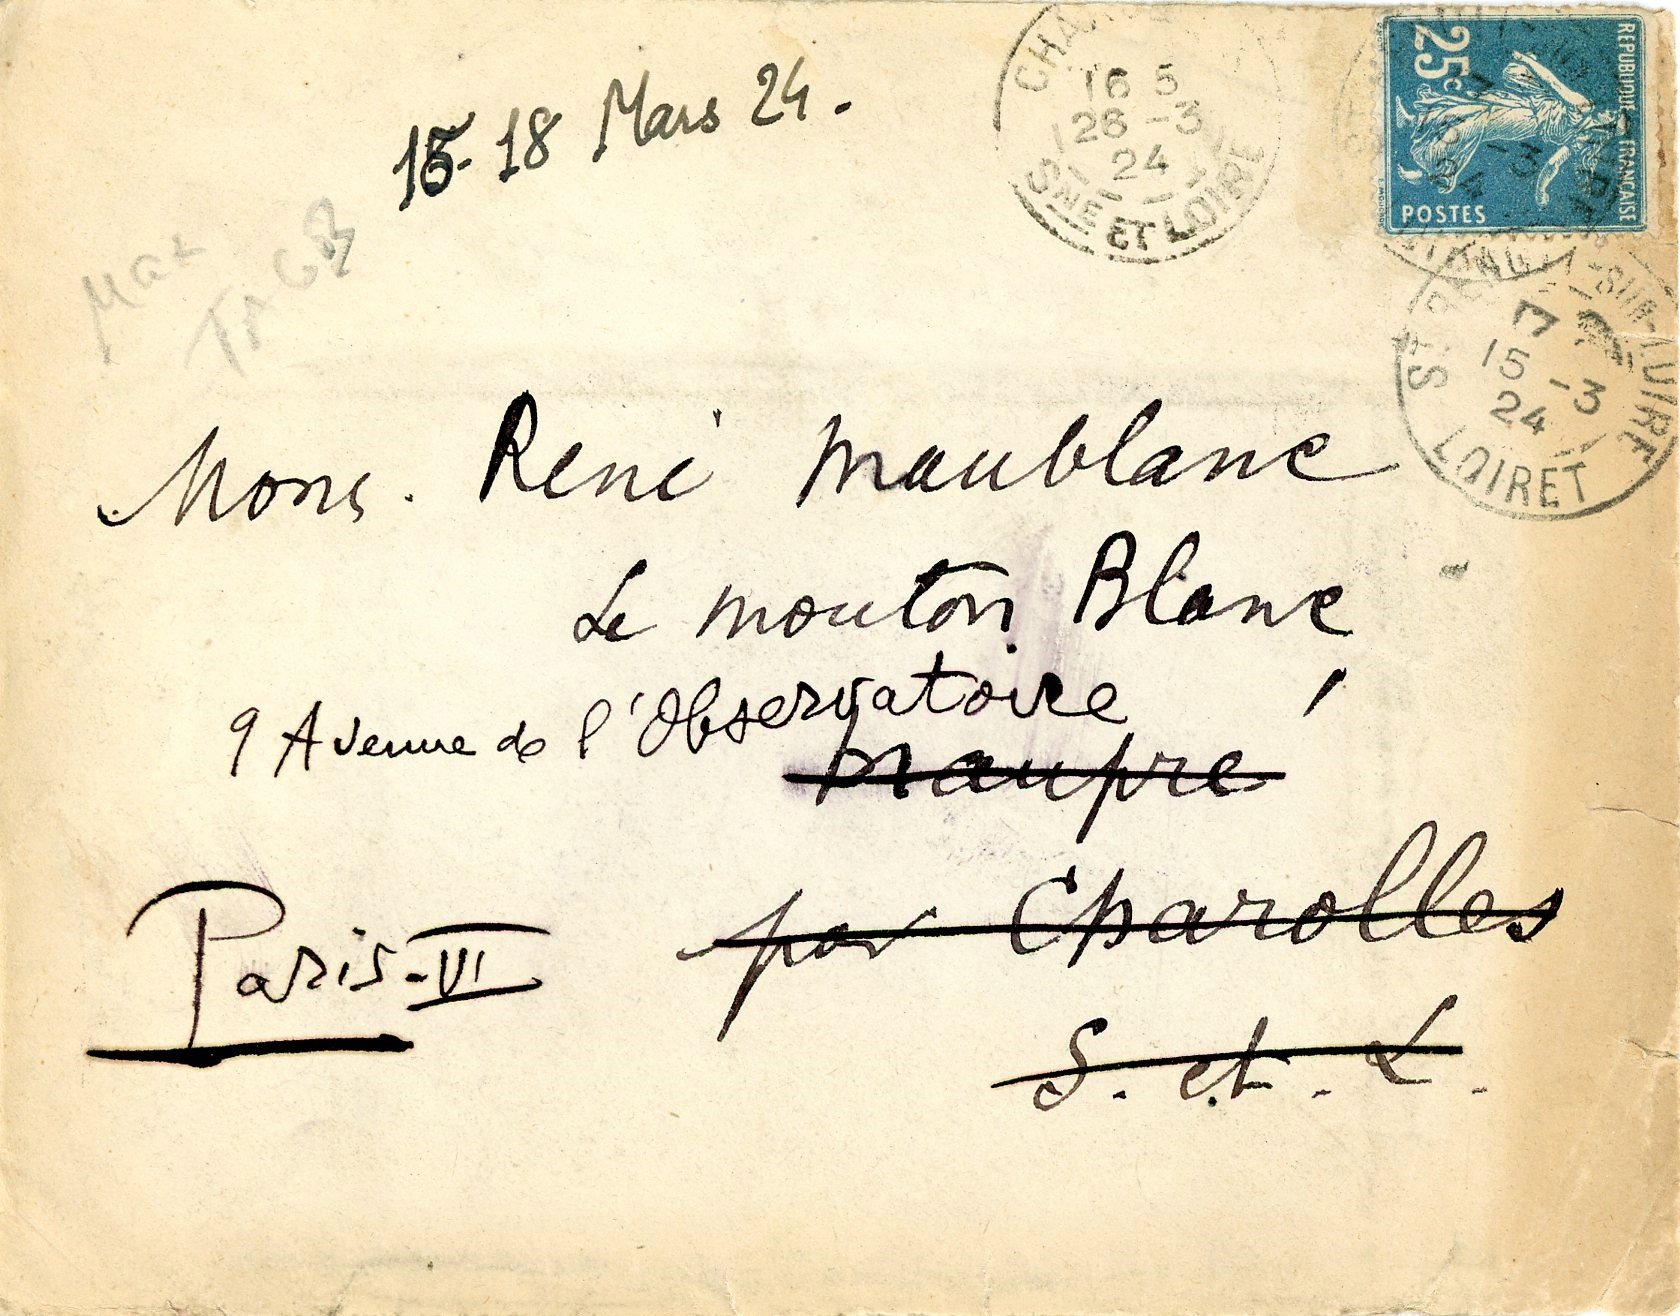 15-18 Mars 24.
CHA
16 5
26 -3
24
SNE ET LOIRE
25c
REPUBLIQUE FRANÇAISE
POSTES
ST BENOIT-SUR-LOIRE
15 -3
24
LOIRET
Mons. René Maublanc
Le Mouton Blanc
9 Avenue de l'Observatoire
Maupré
par Charolles
Paris-VI
S. et. L.